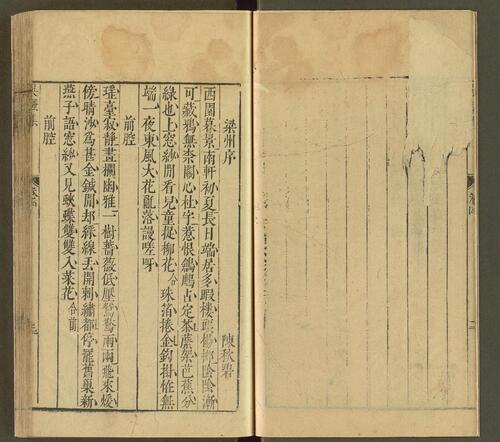 梁州序
陳秋碧
西園暮景南軒初夏長日端居多暇樓頭楊柳陰陰漸
可藏鴉無柰關心杜宇惹恨鷓鴣占定荼蘼架芭蕉分
綠也上窓紗閒看兒童捉柳花合珠箔捲金鈎掛恠無
端一夜東風大花亂落謾嗟呀
前腔
瑤臺寂靜畫欄幽雅一樹薔薇低壓鴛鴦兩兩飛來煖
傍晴沙爲甚金鍼閒却綵線丢開刺繡都停罷舊巢新
燕子語窓紗又見蛺蝶雙雙入菜花合前
前腔
三
二